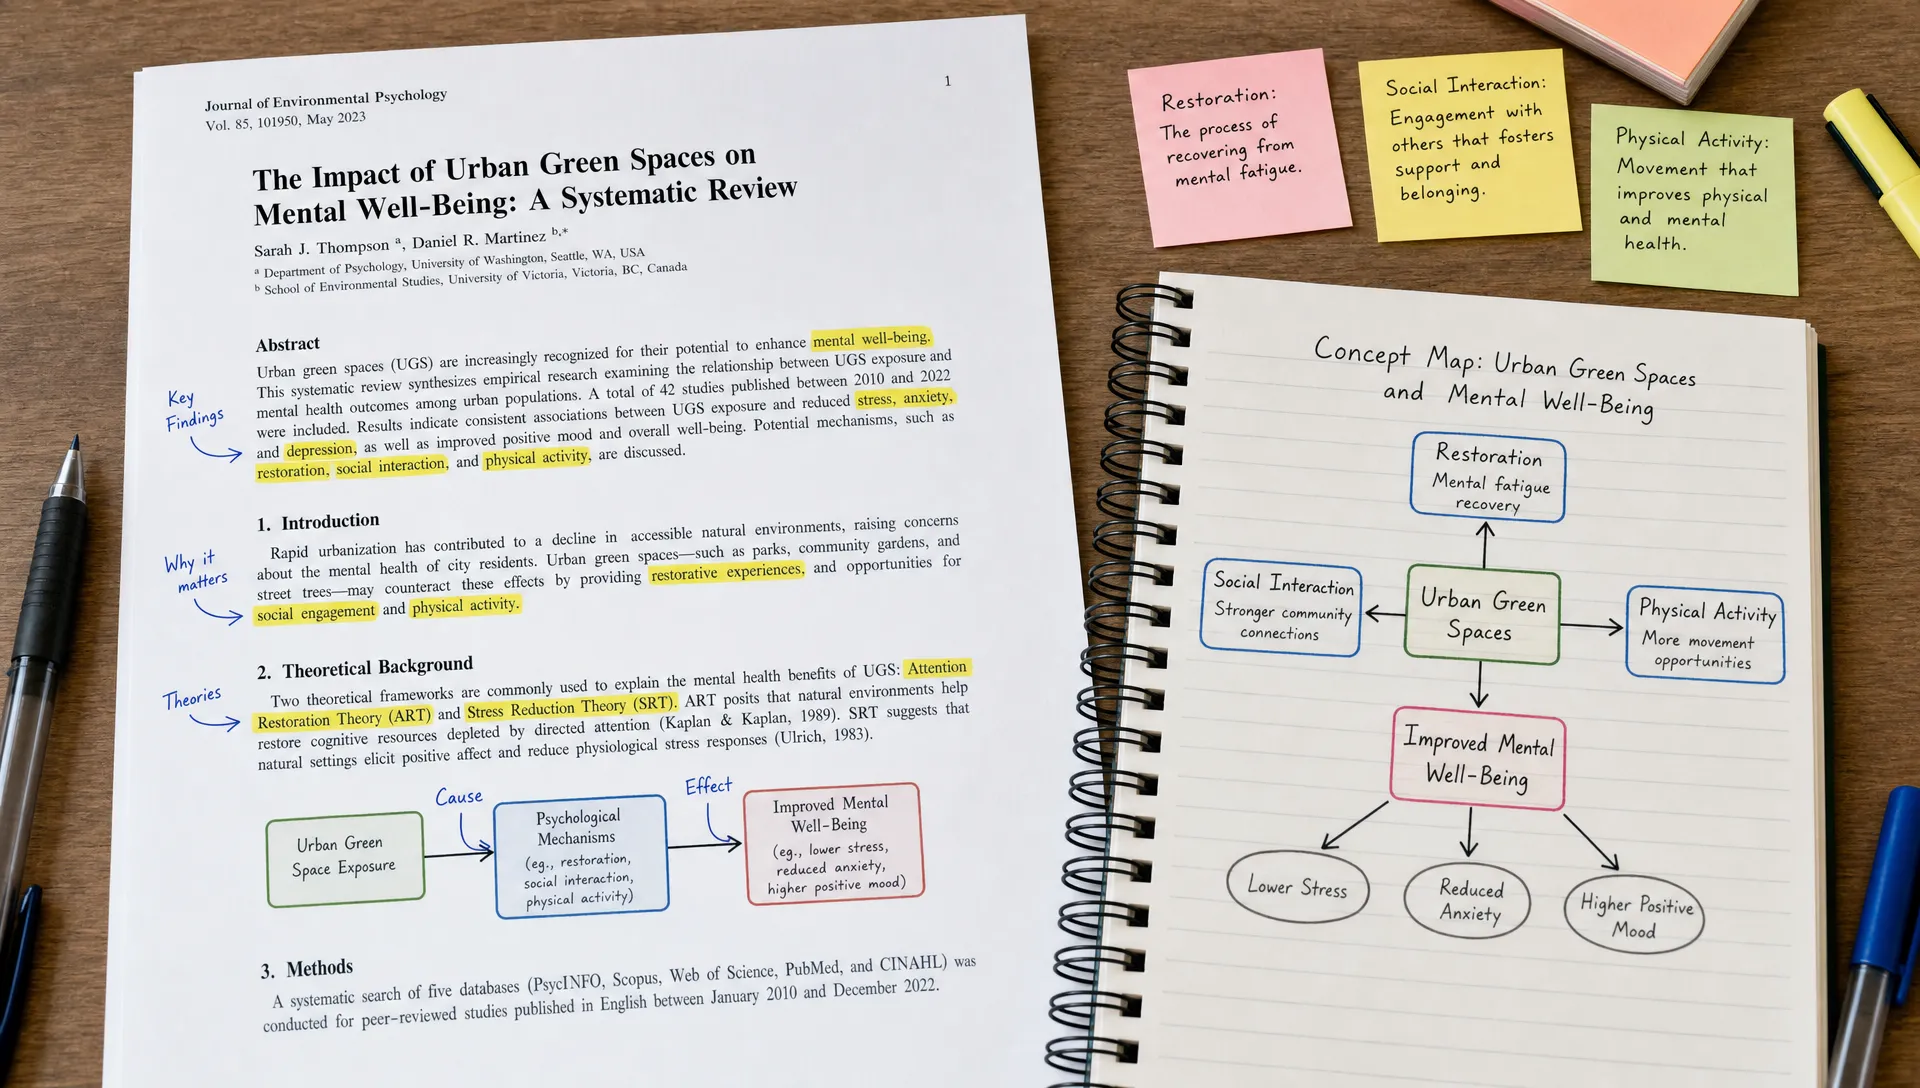 Journal of Environmental Psychology
Vol. 85, 101950, May 2023
1
The Impact of Urban Green Spaces on
Mental Well-Being: A Systematic Review
Sarah J. Thompson ᵃ, Daniel R. Martinez ᵇ,*
ᵃ Department of Psychology, University of Washington, Seattle, WA, USA
ᵇ School of Environmental Studies, University of Victoria, Victoria, BC, Canada
Abstract
Urban green spaces (UGS) are increasingly recognized for their potential to enhance mental well-being.
This systematic review synthesizes empirical research examining the relationship between UGS exposure and
mental health outcomes among urban populations. A total of 42 studies published between 2010 and 2022
were included. Results indicate consistent associations between UGS exposure and reduced stress, anxiety,
and depression, as well as improved positive mood and overall well-being. Potential mechanisms, such as
restoration, social interaction, and physical activity, are discussed.
Key
Findings
1. Introduction
Rapid urbanization has contributed to a decline in accessible natural environments, raising concerns
about the mental health of city residents. Urban green spaces—such as parks, community gardens, and
street trees—may counteract these effects by providing restorative experiences, and opportunities for
social engagement and physical activity.
Why it
matters
2. Theoretical Background
Two theoretical frameworks are commonly used to explain the mental health benefits of UGS: Attention
Restoration Theory (ART) and Stress Reduction Theory (SRT). ART posits that natural environments help
restore cognitive resources depleted by directed attention (Kaplan & Kaplan, 1989). SRT suggests that
natural settings elicit positive affect and reduce physiological stress responses (Ulrich, 1983).
Theories
Cause
Effect
Urban Green
Space Exposure
Psychological
Mechanisms
(eg., restoration,
social interaction,
physical activity)
Improved Mental
Well-Being
(eg., lower stress,
reduced anxiety,
higher positive mood)
3. Methods
A systematic search of five databases (PsycINFO, Scopus, Web of Science, PubMed, and CINAHL) was
conducted for peer-reviewed studies published in English between January 2010 and December 2022.
Restoration:
The process of
recovering from
mental fatigue.
Social Interaction:
Engagement with
others that fosters
support and
belonging.
Physical Activity:
Movement that
improves physical
and mental
health.
Concept Map: Urban Green Spaces
and Mental Well-Being
Restoration
Mental fatigue
recovery
Social Interaction
Stronger community
connections
Urban Green
Spaces
Physical Activity
More movement
opportunities
Improved Mental
Well-Being
Lower Stress
Reduced
Anxiety
Higher Positive
Mood